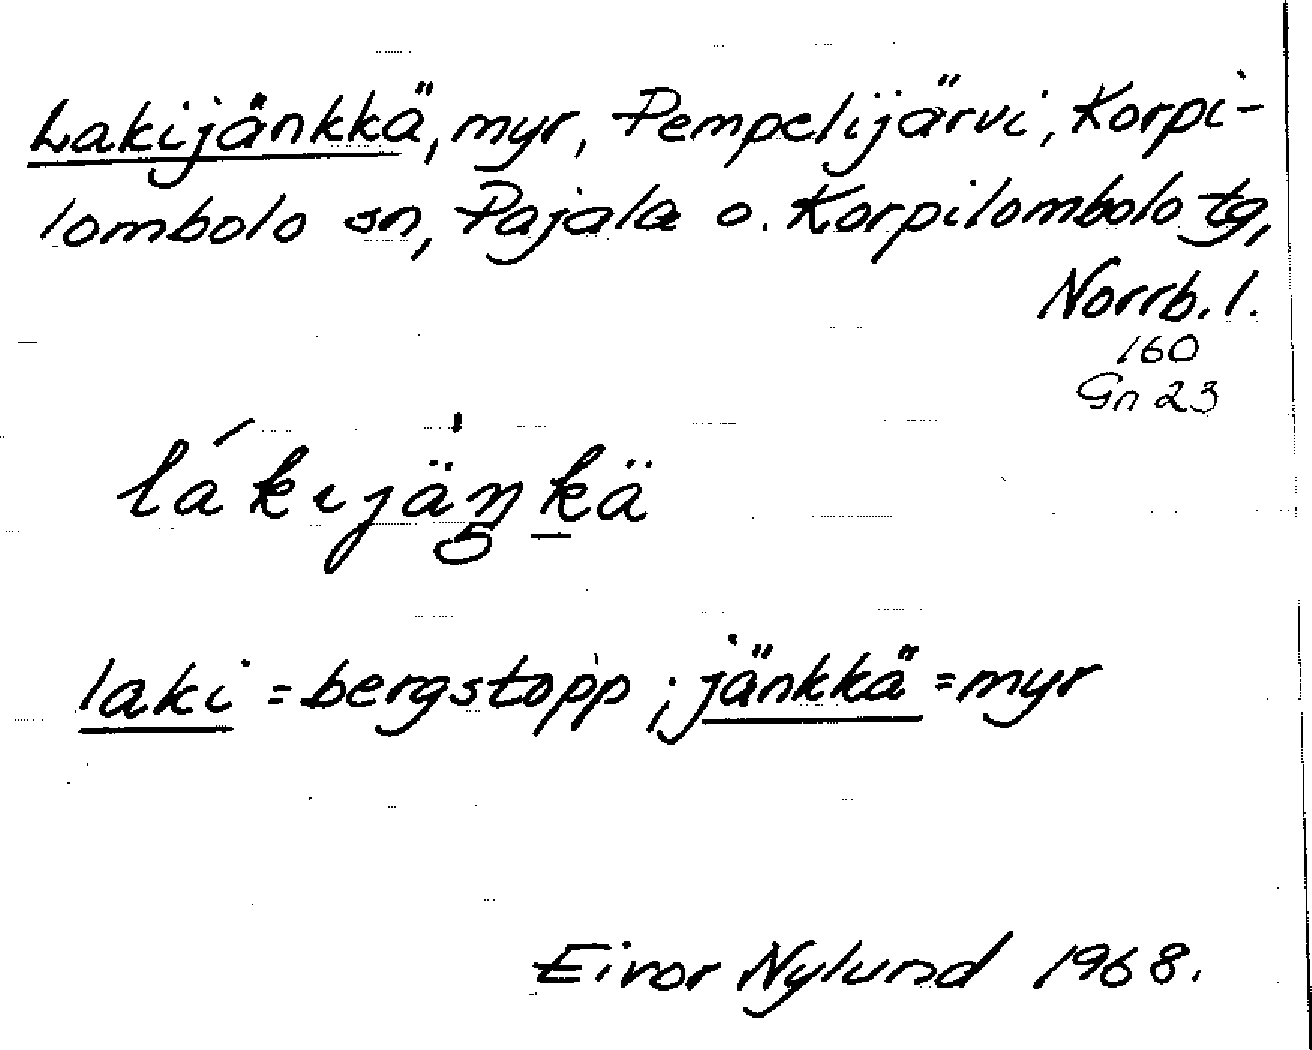 Lakijänkkä, myr, Pempelijärvi, Korpi-
lombolo sn, Pajala o. Korpilombolo tg,
Norrb. l.
160
Gn 23
lákijäŋkä
laki = bergstopp ; jänkkä = myr
Eivor Nylund 1968.